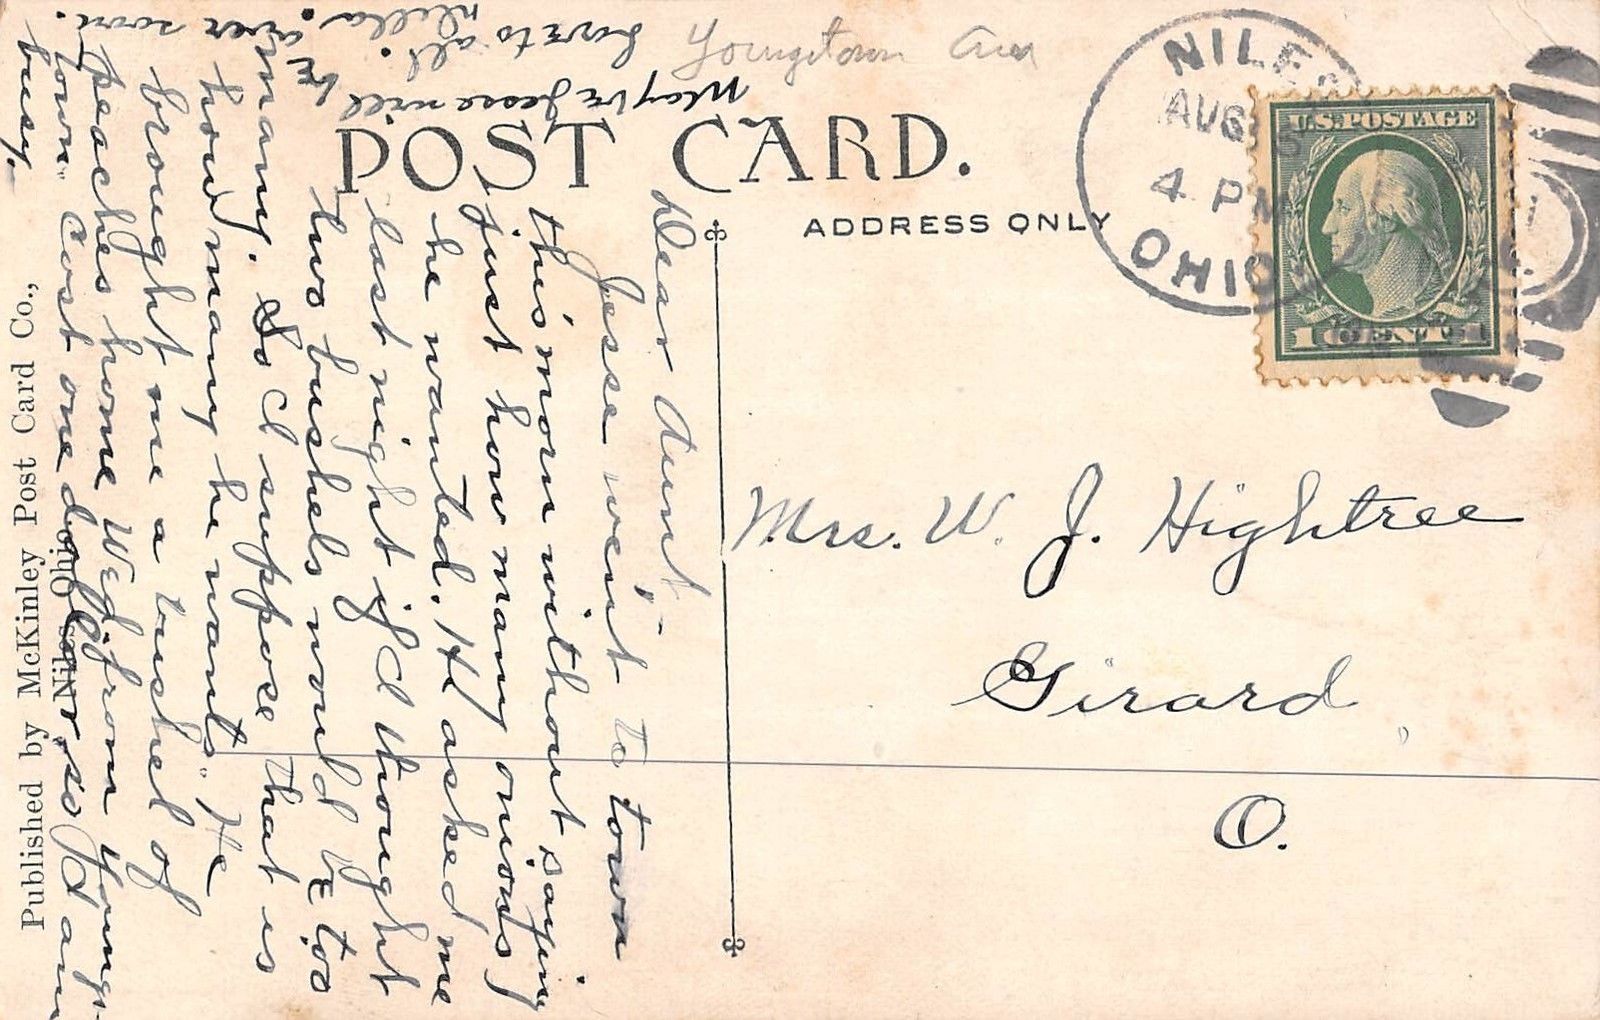 POST CARD.
ADDRESS ONLY
Youngstown Area
NILES
AUG
4 PM
OHIO
U.S. POSTAGE
1 CENT 1
Mrs. W. J. Hightree
Girard,
O.
Dear Aunt:-
Jesse went to town
this morn without saying
just how many onions
he wanted. He asked me
last night if I thought
two bushels would be too
many. So I suppose that is
how many he wants." He
brought me a bushel of
peaches home Wed. from Youngs-
town" Cost one dollar, so I am
busy.
Maybe Jesse will be
over soon.
Love to all.
Della.
Published by McKinley Post Card Co.,
Niles, Ohio